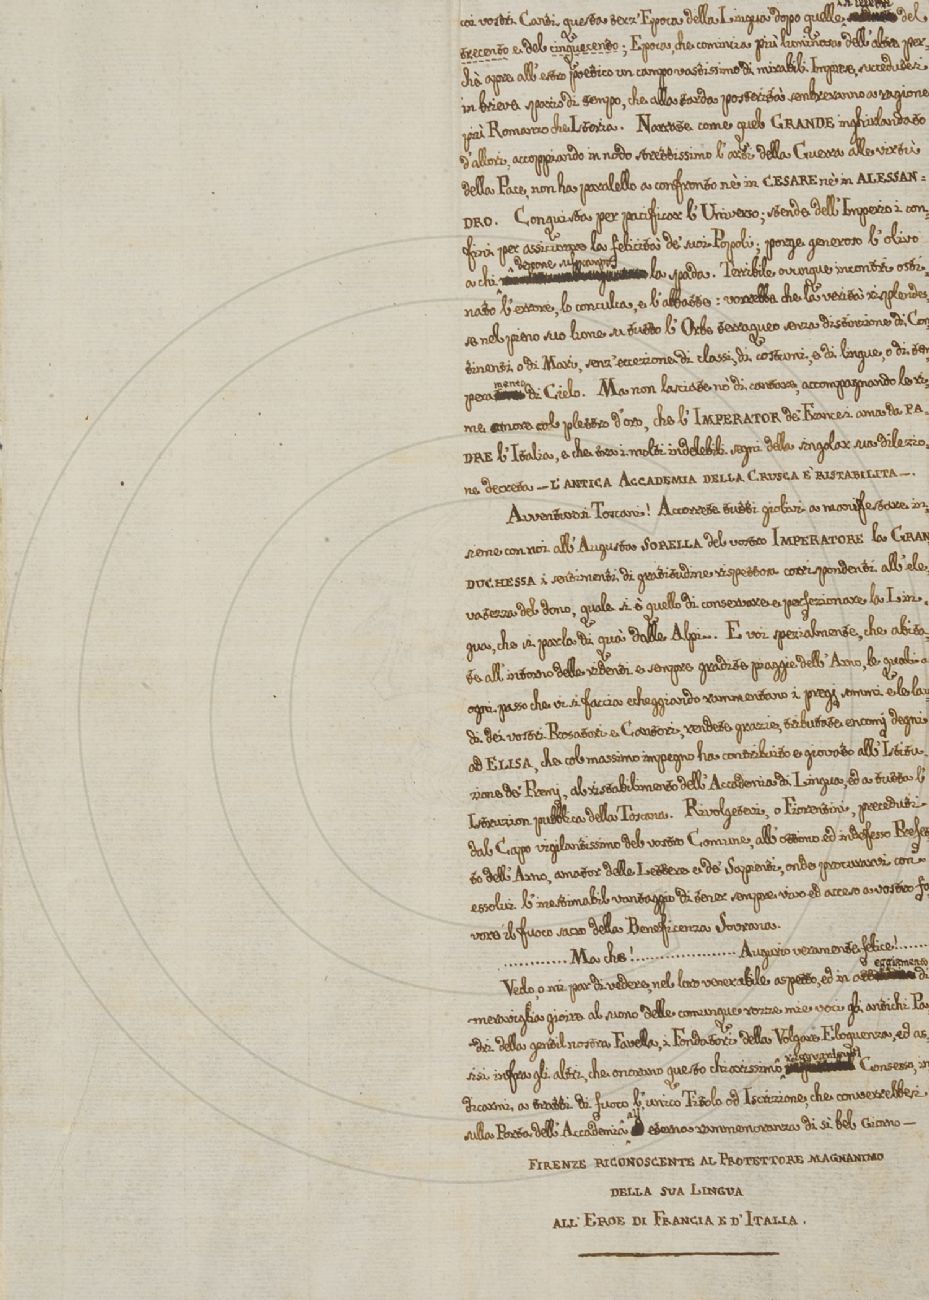 coi vostri Canti questa terz' Epoca della Lingua dopo quelle del
trecento e del cinquecento; Epoca, che comincia più luminosa dell' altre per,
chè apre all' estro poetico un campo vastissimo di mirabili Imprese, succedutesi
in breve spazio di tempo, che alla tarda posterità sembreranno a ragione
più Romanzo che Istoria. Narrate come quel GRANDE inghirlandato
d'allori, accoppiando in nodo strettissimo l'arti della Guerra alle virtù
della Pace, non ha paralello a confronto nè in CESARE nè in ALESSAN=
DRO. Conquista per pacificar l'Universo; stende dell'Imperio i con,
fini per assicurare la felicità de' suoi Popoli; porge generoso l'olivo
a chi depone la spada. Terribile ovunque incontri osti,
nato l'errore, lo conculca, e l'abbatte: vorrebbe che la verità risplendes,
se nel pieno suo lume su tutto l'Orbe terraqueo senza distinzione di Con
tinenti, o di Mari, senz'eccezione di classi, di costumi, e di lingue, o di tem
peramento di Cielo. Ma non lasciate nò di cantare, accompagnando le ri,
me col plettro d'oro, che l'IMPERATOR de' Francesi ama da PA=
DRE l'Italia, e che tra i molti indelebili segni della singolar sua dilezio,
ne decreta — L'ANTICA ACCADEMIA DELLA CRUSCA È RISTABILITA —.
Avventurosi Toscani! Accorrete tutti giolivi a manifestare in,
sieme con noi all'Augusta SORELLA del vostro IMPERATORE la GRAN
DUCHESSA i sentimenti di gratitudine rispettosa corrispondenti all' ele,
vatezza del dono, quale si è quello di conservare e perfezionare la Lin,
gua, che si parla di quà dalle Alpi. E voi spezialmente, che abita,
te all' intorno delle ridenti e sempre gradite piagge dell'Arno, le quali a
ogni passo che vi si faccia echeggiando rammentano i pregj sommi e le lau
di dei vostri Prosatori e Cantori, rendete grazie, tributate encomj degni
ad ELISA, che col massimo impegno ha contribuito e giovato all'Istitu,
zione de' Premj, al ristabilimento dell'Accademia di Lingua, ed a tutta l'
Istruzion pubblica della Toscana. Rivolgetevi, o Fiorentini, preceduti
dal Capo vigilantissimo del vostro Comune, all' ottimo ed indefesso Prefet
to dell'Arno, amator delle Lettere e de' Sapienti, onde procurarvi con
essolui l'inestimabil vantaggio di tener sempre vivo ed acceso a vostro fa,
vore il fuoco sacro della Beneficenza Sovrana.
............ Ma che!.................... Augurio veramente felice!......
Vedo, o mi par di vedere, nel loro venerabile aspetto, ed in atteggiamento di
meraviglia gioire al suono delle comunque rozze mie voci gli antichi Pa
dri della gentil nostra Favella, i Fondatori della Volgare Eloquenza, ed as,
sisi infra gli altri, che onorano questo chiarissimo Consesso, in
dicarmi a tratti di fuoco l'unico Titolo od Iscrizione, che converrebbesi
sulla Porta dell'Accademia ad eterna rammemoranza di sì bel Giorno —
FIRENZE RICONOSCENTE AL PROTETTORE MAGNANIMO
DELLA SUA LINGUA
ALL' EROE DI FRANCIA E D'ITALIA.